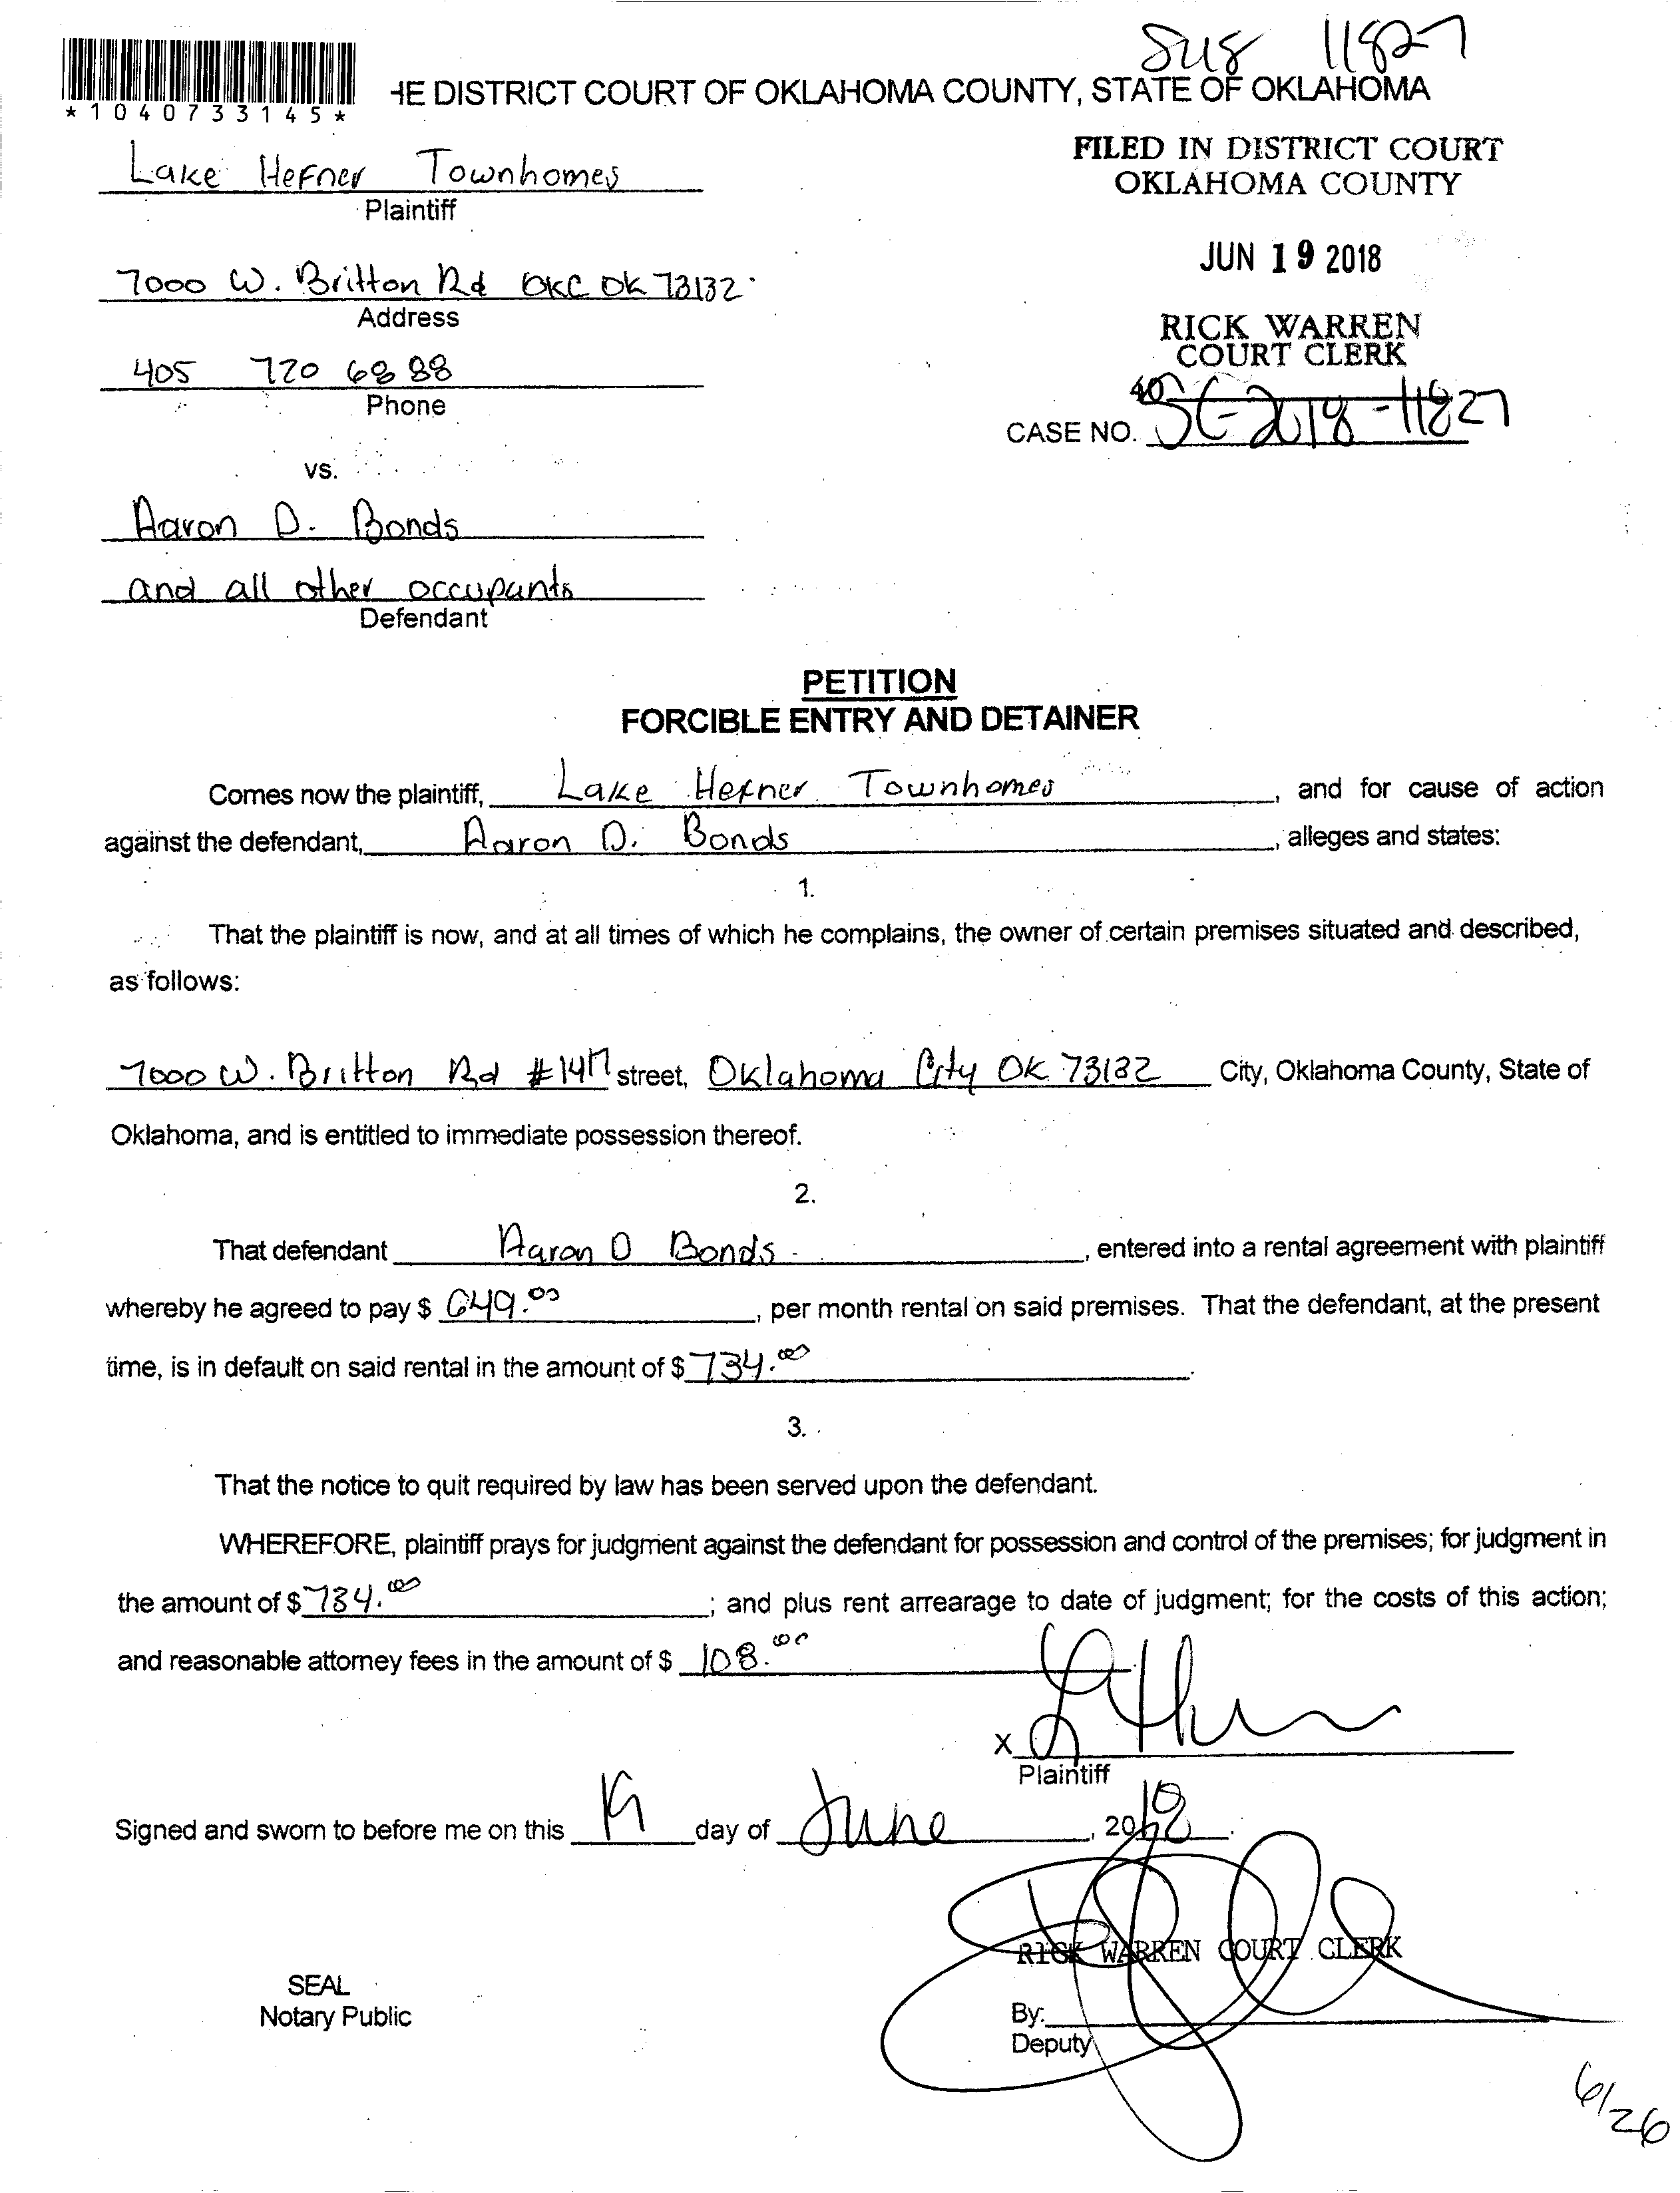 11827
*1040733145*
HE DISTRICT COURT OF OKLAHOMA COUNTY, STATE OF OKLAHOMA
Lake Hefner Townhomes
Plaintiff
FILED IN DISTRICT COURT
OKLAHOMA COUNTY
7000 W. Britton Rd OKC OK 73132
Address
JUN 19 2018
405 720 6888
Phone
RICK WARREN
COURT CLERK
40
CASE NO. SC-2018-11827
vs.
Aaron D. Bonds
and all other occupants
Defendant
PETITION
FORCIBLE ENTRY AND DETAINER
Comes now the plaintiff, Lake Hefner Townhomes, and for cause of action
against the defendant, Aaron D. Bonds, alleges and states:
1.
That the plaintiff is now, and at all times of which he complains, the owner of certain premises situated and described,
as follows:
7000 W. Britton Rd #147 street, Oklahoma City OK 73132 City, Oklahoma County, State of
Oklahoma, and is entitled to immediate possession thereof.
2.
That defendant Aaron D Bonds, entered into a rental agreement with plaintiff
whereby he agreed to pay $ 649.00, per month rental on said premises. That the defendant, at the present
time, is in default on said rental in the amount of $ 734.00.
3.
That the notice to quit required by law has been served upon the defendant.
WHEREFORE, plaintiff prays for judgment against the defendant for possession and control of the premises; for judgment in
the amount of $ 734.00; and plus rent arrearage to date of judgment; for the costs of this action;
and reasonable attorney fees in the amount of $ 108.00
X
Plaintiff
Signed and sworn to before me on this 19 day of June, 2018.
RICK WARREN COURT CLERK
SEAL
Notary Public
By:
Deputy
6/26